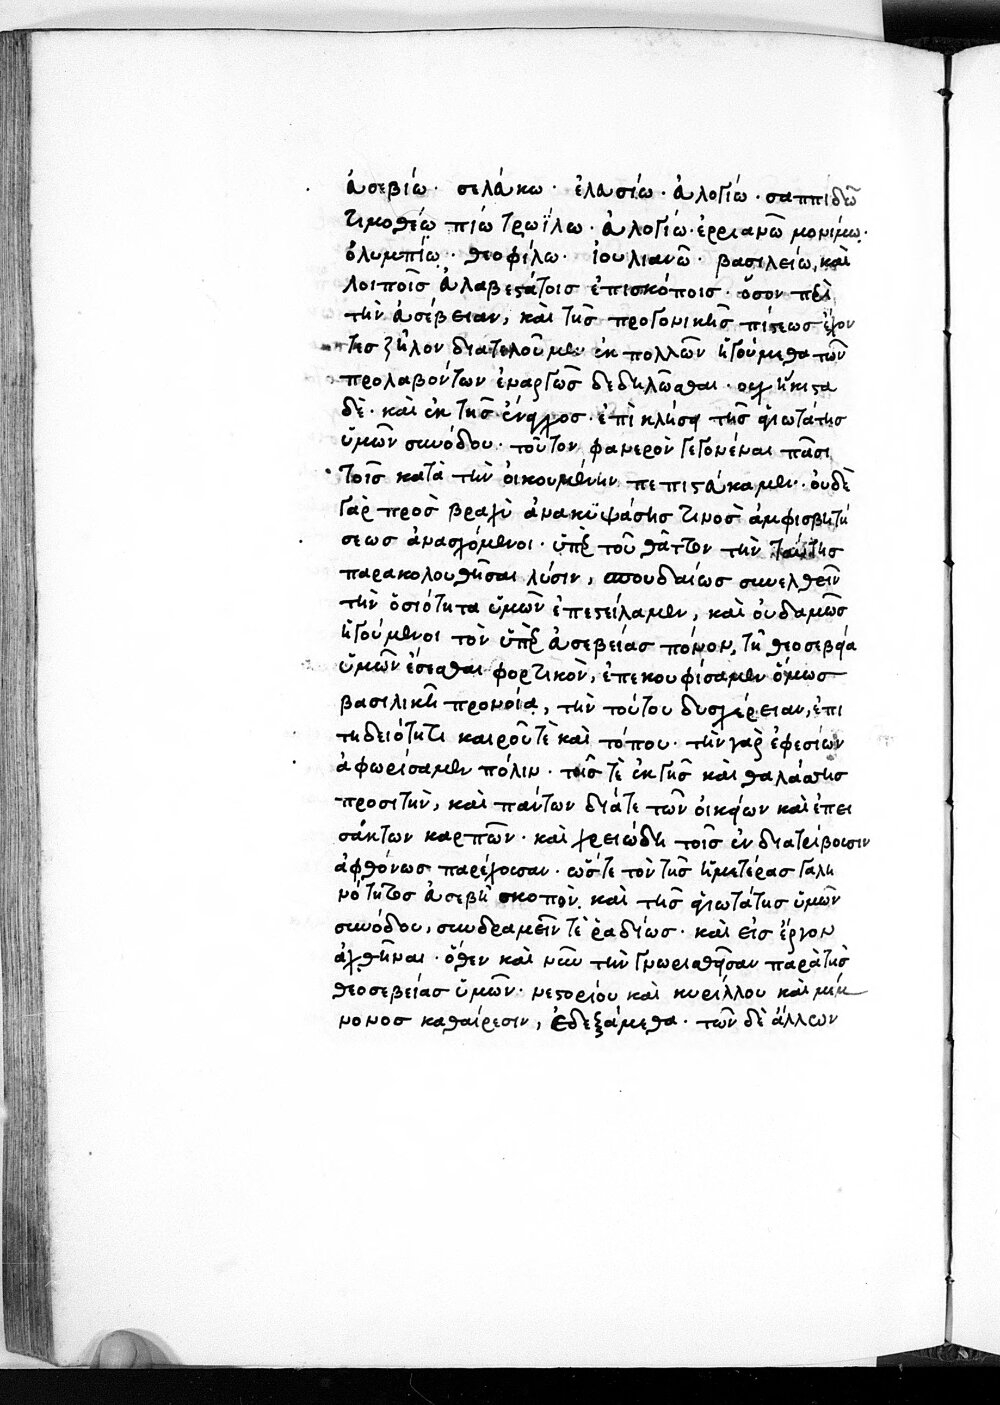 εὐσεβίω · σελεύκω · ἐλασίω · εὐλογίω · σαππιδίω
τιμοθέω πίω τρωΐλω · εὐλογίω · ἐρριανῶ μονίμω ·
ὀλυμπίω · θεοφίλω · ἰουλιανῶ · βασιλείω, καὶ
λοιποῖς εὐλαβεστάτοις ἐπισκόποις · ὅσον περὶ
τὴν εὐσέβειαν, καὶ τῆς προγονικῆς πίστεως ἔχον
τες ζῆλον διατελοῦμεν ἐκ πολλῶν ἡγούμεθα τῶν
προλαβόντων ἐναργῶς δεδηλῶσθαι · οὐχ ἥκιστα
δὲ · καὶ ἐκ τῆς ἔναγχος · ἐπικλήσει τῆς ἁγιωτάτης
ὑμῶν συνόδου · τοῦτον φανερὸν γεγονέναι πᾶσι
τοῖς κατὰ τὴν οἰκουμένην πεπιστεύκαμεν · οὐδὲ
γὰρ πρὸς βραχὺ ἀνακυψάσης τινὸς ἀμφισβητή
σεως ἀνασχόμενοι · ὑπὲρ τοῦ θᾶττον τὴν ταύτης
παρακολουθῆσαι λύσιν, σπουδαίως συνελθεῖν
τὴν ὁσιότητα ὑμῶν ἐπεστείλαμεν, καὶ οὐδαμῶς
ἡγούμενοι τὸν ὑπὲρ εὐσεβείας πόνον, τῆ θεοσεβεία
ὑμῶν ἔσεσθαι φορτικὸν, ἐπεκουφίσαμεν ὅμως
βασιλικῆ προνοία, τὴν τούτου δυσχέρειαν, ἐπι
τηδειότητι καιροῦ τὲ καὶ τόπου · τὴν γὰρ ἐφεσίων
ἀφωρίσαμεν πόλιν · τοῖς τὲ ἐκ γῆς καὶ θαλάσσης
προσιτὴν, καὶ πάντων διά τε τῶν οἰκείων καὶ ἐπει
σάκτων καρπῶν · καὶ χρειώδη τοῖς ἐνδιατρίβουσιν
ἀφθόνως παρέχουσαν · ὥστε τὸν τῆς ἡμετέρας γαλη
νότητος εὐσεβῆ σκοπὸν, καὶ τῆς ἁγιωτάτης ὑμῶν
συνόδου, συνδραμεῖν τὲ ῥαδίως · καὶ εἰς ἔργον
ἀχθῆναι · ὅθεν καὶ νῦν τὴν γνωρισθεῖσαν παρὰ τῆς
θεοσεβείας ὑμῶν · νεστορίου καὶ κυρίλλου καὶ μέμ
νονος καθαίρεσιν, ἐδεξάμεθα · τῶν δὲ ἄλλων